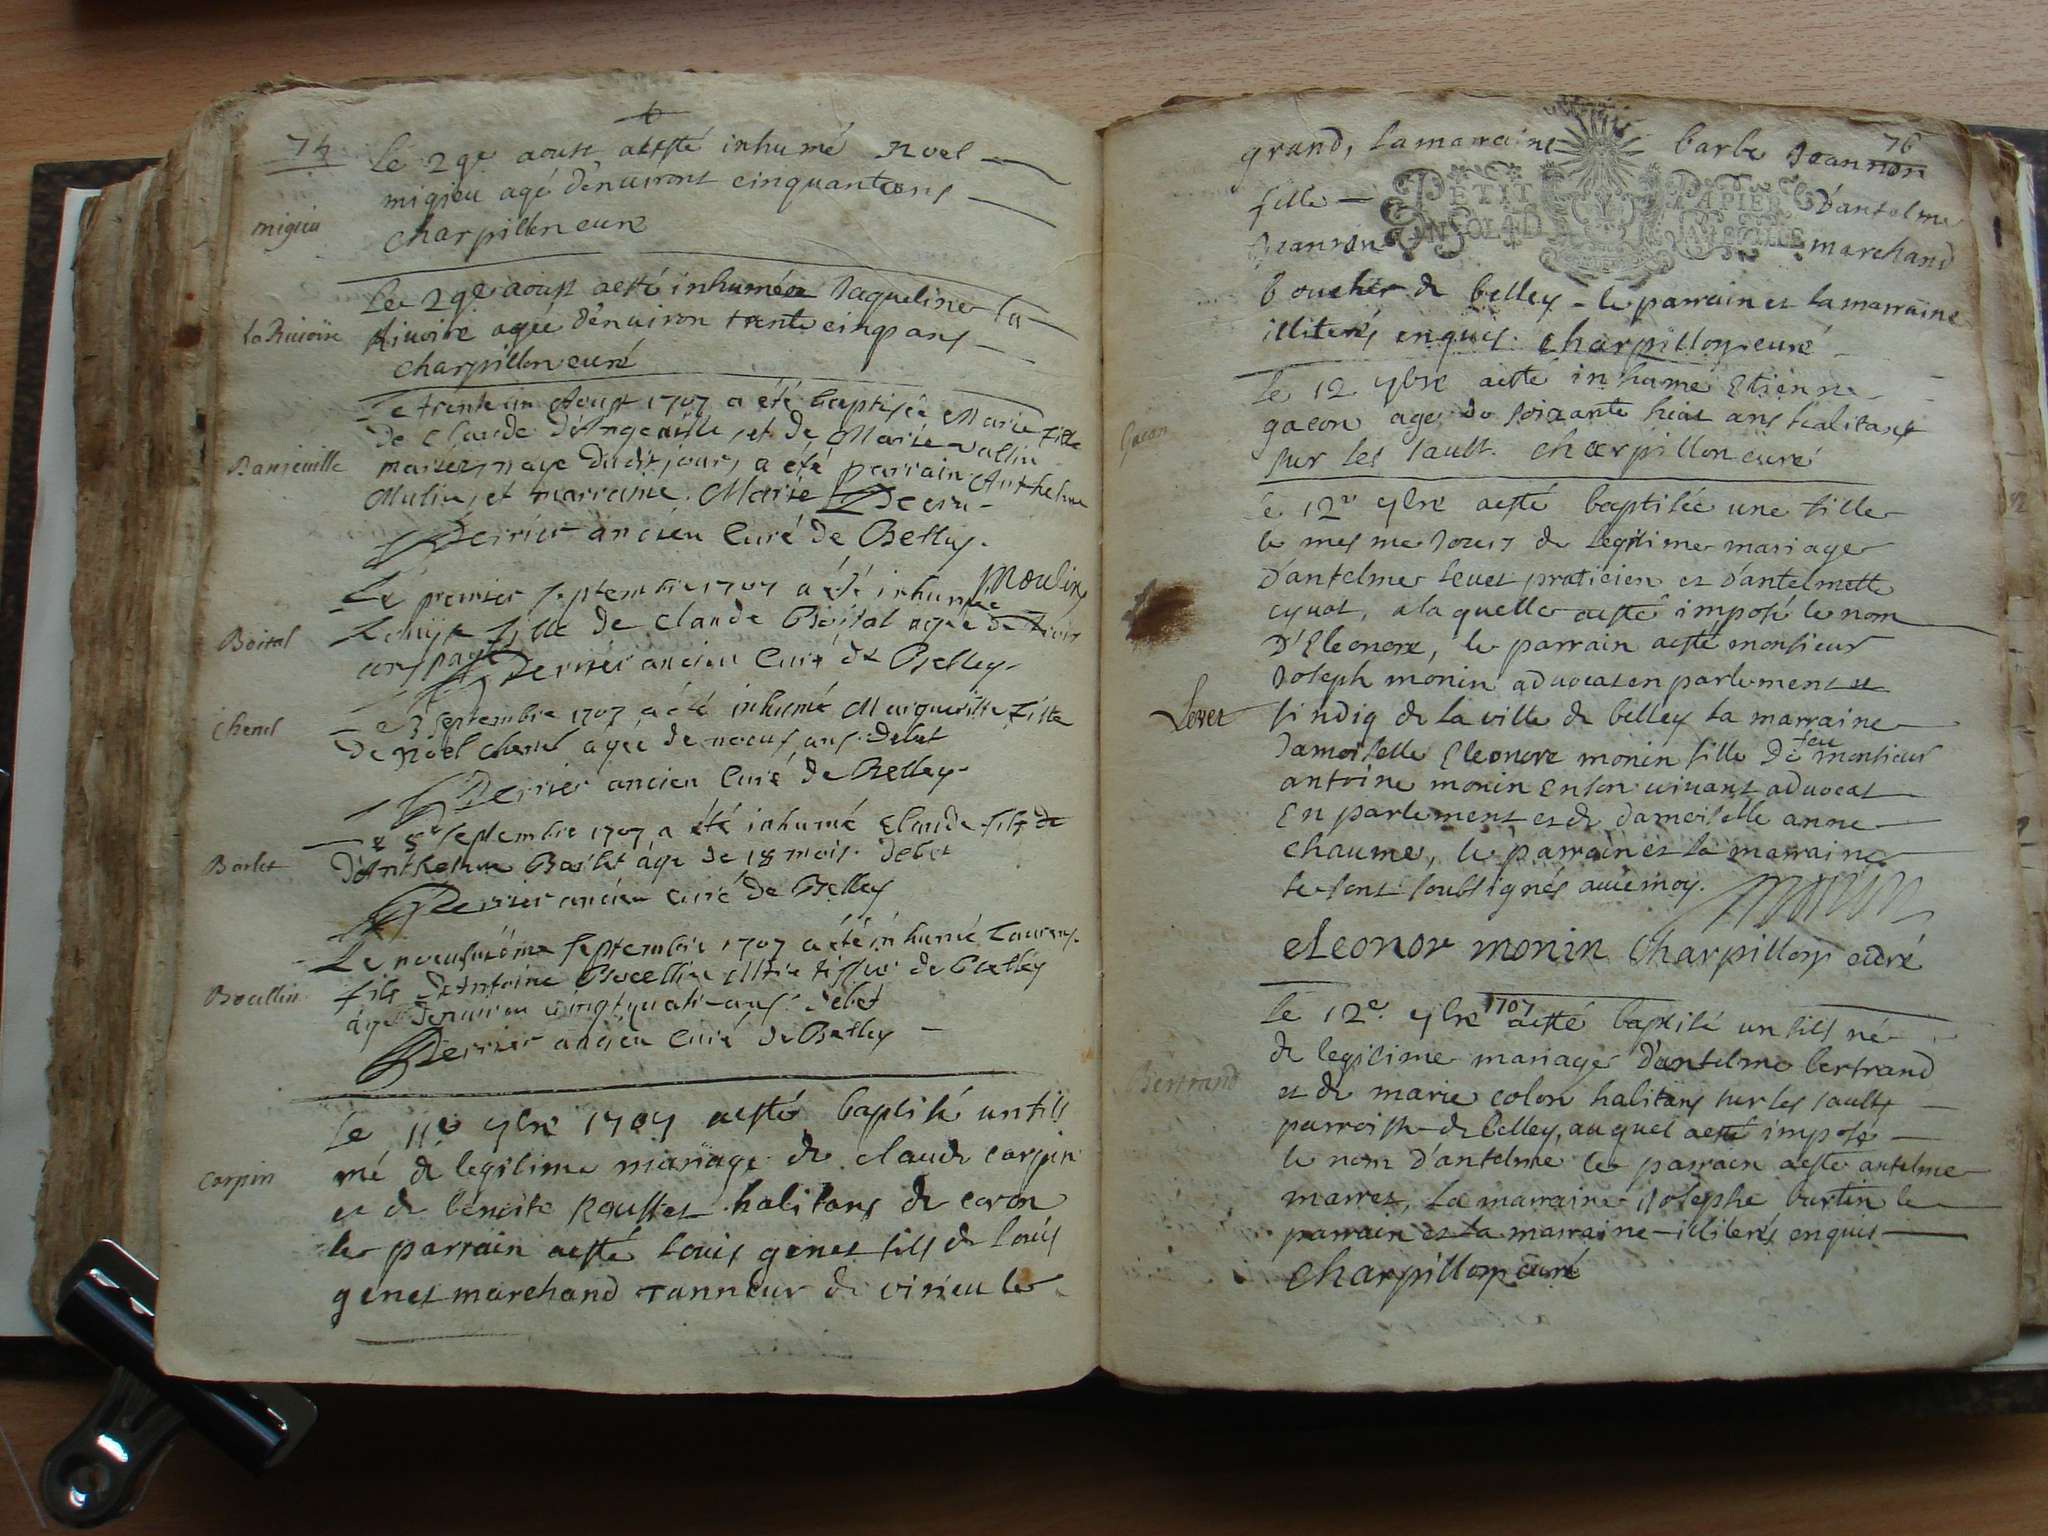 74
Le 29e aoust a esté inhumé Noel
migieu agé d'enuiront cinquante ans
charpillon curé
migieu
Le 29e aoust a esté inhumée Jaqueline la
Riuoire agée d'enuiron trente cinq ans
charpillon curé
la Riuoire
Le trente un Aoust 1707 a été baptisée Marie fille
de Claude et de Marie
mariez, naye dudit jour, a été parrain Anthelme
Mulin, et marraine Marie
Derrier ancien Curé de Belley.
Le premier septembre 1707 a été inhumée
Moulin
fille de Claude Boital agée de trois
ans payé
Derrier ancien Curé de Belley
Boital
Le 3 septembre 1707 a été inhumé Margueritte fille
de Noël Chenel agée de noeuf ans. debet
Derrier ancien Curé de Belley
Chenel
Le 8e septembre 1707 a été inhumé Claude fils de
d'Anthelme Barlet âge de 18 mois. debet
Derrier ancien Curé de Belley
Barlet
Le noeufuiéme septembre 1707 a été inhumé Laurens
fils d'Antoine Bocellin Mtre tissier de Belley
âgé d'enuiron vingt quatre ans. debet
Derrier ancien Curé de Belley
Bocellin
Le 11e 7bre 1707 a esté baptisé un fils
né de legitime mariage de claude carpin
et de benoite Rousset habitans de coron
le parrain a esté Louis genet fils de Louis
genet marchand tanneur de virieu le
carpin
76
grand, la marraine barbe Jeannon
fille d'antelme
Jeannon marchand
boucher de belley - le parrain et la marraine
illiterés enquis. charpillon curé
PETIT PAPIER
Le 12 7bre a esté inhumé Etienne
gacon agé de soixante huit ans habitant
sur les sault. charpillon curé
gacon
Le 12e 7bre a esté baptisée une fille
le mesme jour, de legitime mariage
d'antelme leuet praticien et d'antelmette
cyuot, a laquelle a esté imposé le nom
d'Eleonore, le parrain a esté monsieur
Joseph monin aduocat en parlement et
sindiq de la ville de belley la marraine
damoiselle Eleonore monin fille de feu monsieur
antoine monin en son uiuant aduocat
En parlement et de damoiselle anne
chaume, le parrain et la marraine
se sont soubsignés auec moy. Monin
eLeonor monin charpillon curé
Levet
Le 12e 7bre 1707 a esté baptisé un fils né
de legitime mariage d'antelme bertrand
et de marie colon habitans sur les saults
parroisse de belley, auquel a esté imposé
le nom d'antelme le parrain a esté antelme
marret, la marraine Josephe burtin le
parrain et la marraine illiterés enquis
charpillon curé
Bertrand